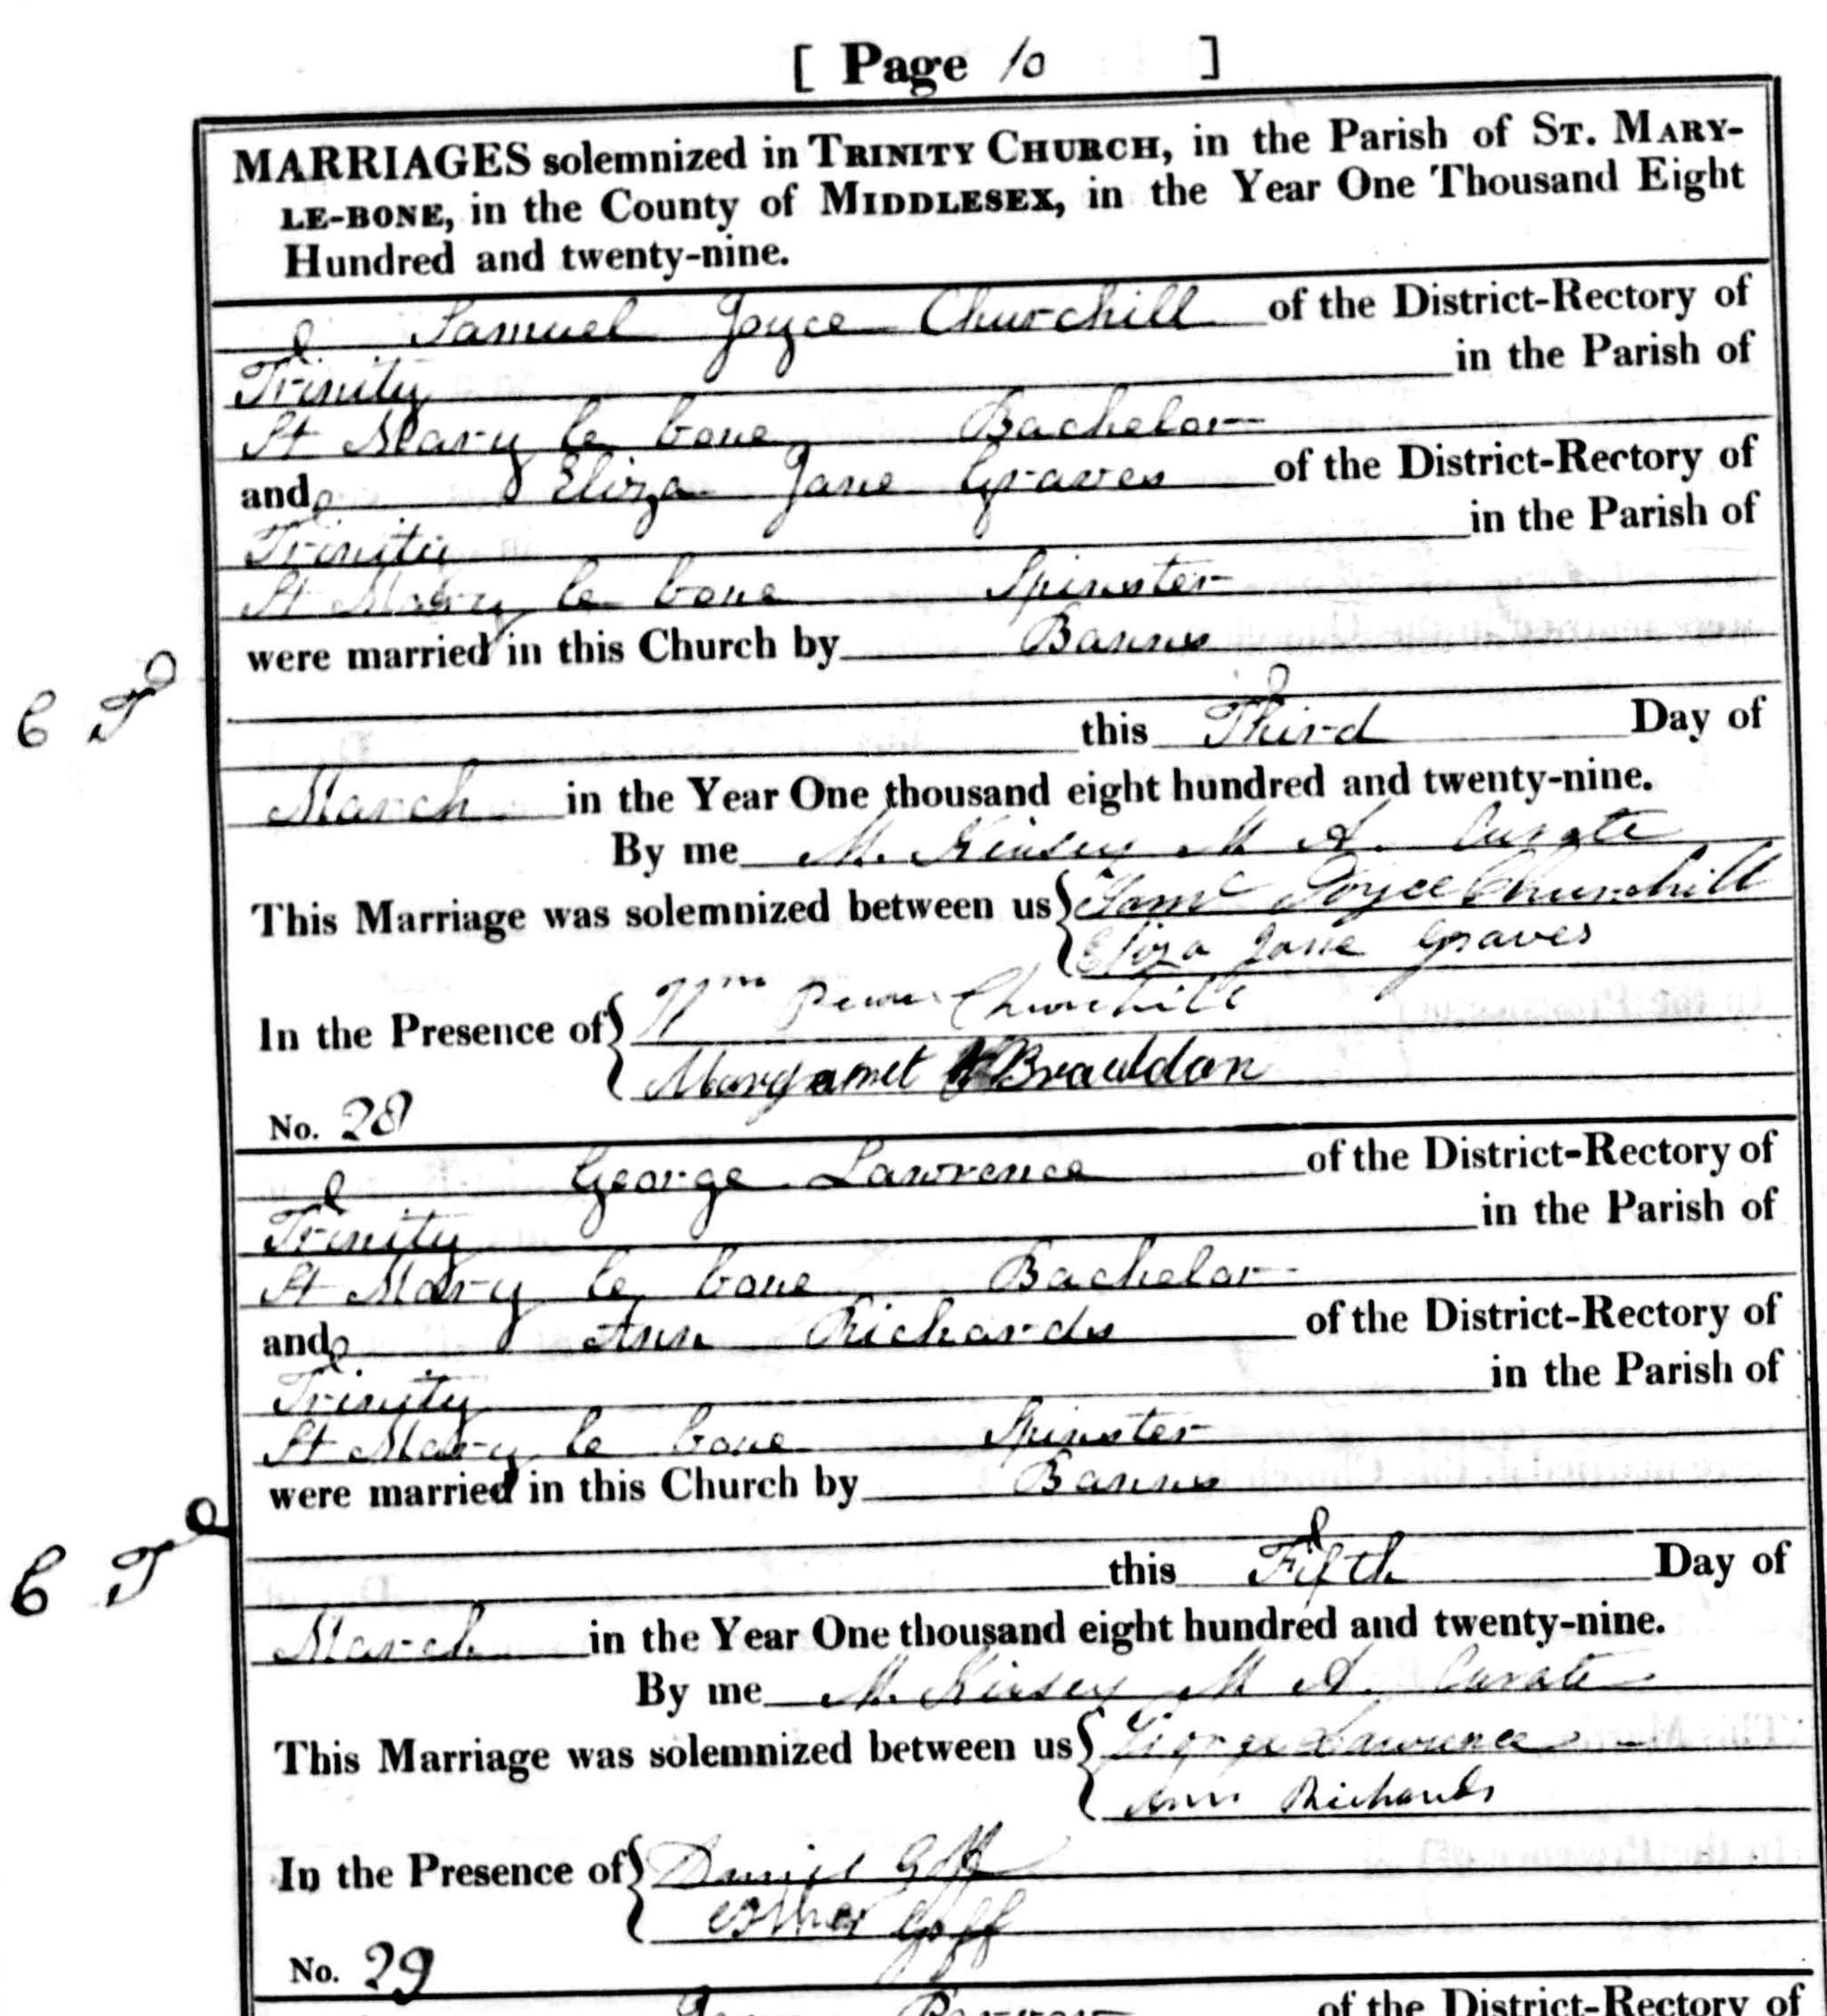 [ Page 10 ]
MARRIAGES solemnized in TRINITY CHURCH, in the Parish of ST. MARY-
LE-BONE, in the County of MIDDLESEX, in the Year One Thousand Eight
Hundred and twenty-nine.
Samuel Joyce Churchill of the District-Rectory of
Trinity in the Parish of
St Mary le bone Bachelor
and Eliza Jane Graves of the District-Rectory of
Trinity in the Parish of
St Mary le bone Spinster
were married in this Church by Banns
6 T
this Third Day of
March in the Year One thousand eight hundred and twenty-nine.
By me M. Kinsey M A. Curate
This Marriage was solemnized between us Saml Joyce Churchill
Eliza Jane Graves
In the Presence of Wm Churchill
Margaret Brauldon
No. 28
George Lawrence of the District-Rectory of
Trinity in the Parish of
St Mary le bone Bachelor
and Ann Richards of the District-Rectory of
Trinity in the Parish of
St Mary le bone Spinster
were married in this Church by Banns
6 T
this Fifth Day of
March in the Year One thousand eight hundred and twenty-nine.
By me M. Kinsey M A. Curate
This Marriage was solemnized between us George Lawrence
Ann Richards
In the Presence of Daniel Goff
Esther Goff
No. 29
of the District-Rectory of